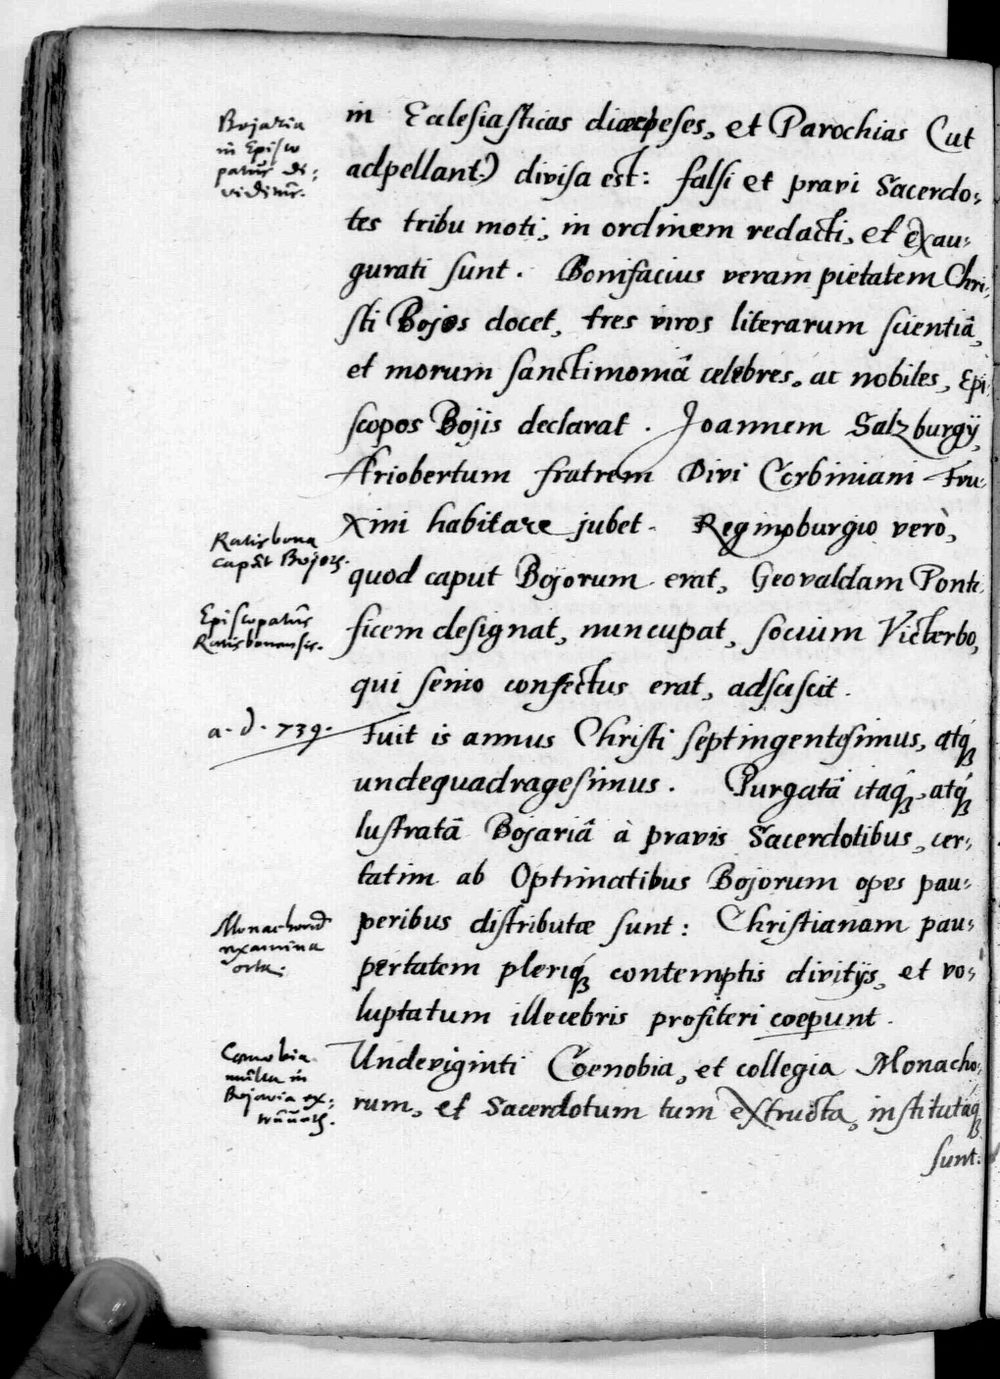 Bojaria
in Episco
patus di-
viditur.
in Ecclesiasticas dioecheses, et Parochias (ut
adpellant) divisa est: falsi et pravi Sacerdo-
tes tribu moti, in ordinem redacti, et exau-
gurati sunt. Bonifacius veram pietatem Chri-
sti Bojos docet, tres viros literarum scientiâ,
et morum sanctimoniâ celebres, ac nobiles, Epi-
scopos Bojis declarat. Joannem Salzburgÿ,
Ariobertum fratrem Divi Corbiniani Fru-
xini habitare jubet. Reginoburgio verò,
Ratisbona
caput Bojors.
quod caput Bojorum erat, Geovaldam Ponti-
Episcopatus
Ratisbonensis.
ficem designat, nuncupat, socium Victerbo,
qui senio confectus erat, adsciscit.
a. d. 739.
Fuit is annus Christi septingentesimus, atq́
undequadragesimus. Purgatâ itaq́, atq́
lustratâ Bojariâ à pravis Sacerdotibus, cer-
tatim ab Optimatibus Bojorum opes pau-
Monachord
examina
orta.
peribus distributæ sunt: Christianam pau-
pertatem pleriq́ contemptis divitÿs, et vo-
luptatum illecebris profiteri coepunt.
Coenobia
multa in
Bojaria ex-
Underiginti Coenobia, et collegia Monacho-
rum, et Sacerdotum tum extructa, institutaq́
sunt.